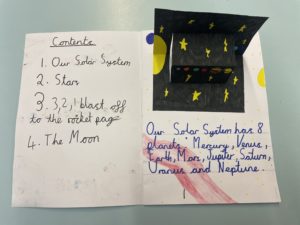 Contents
1. Our Solar System
2. Stars
3. 3, 2, 1 blast off
to the rocket page
4. The Moon
Our Solar System has 8
planets Mercury, Venus,
Earth, Mars, Jupiter, Saturn,
Uranus and Neptune.